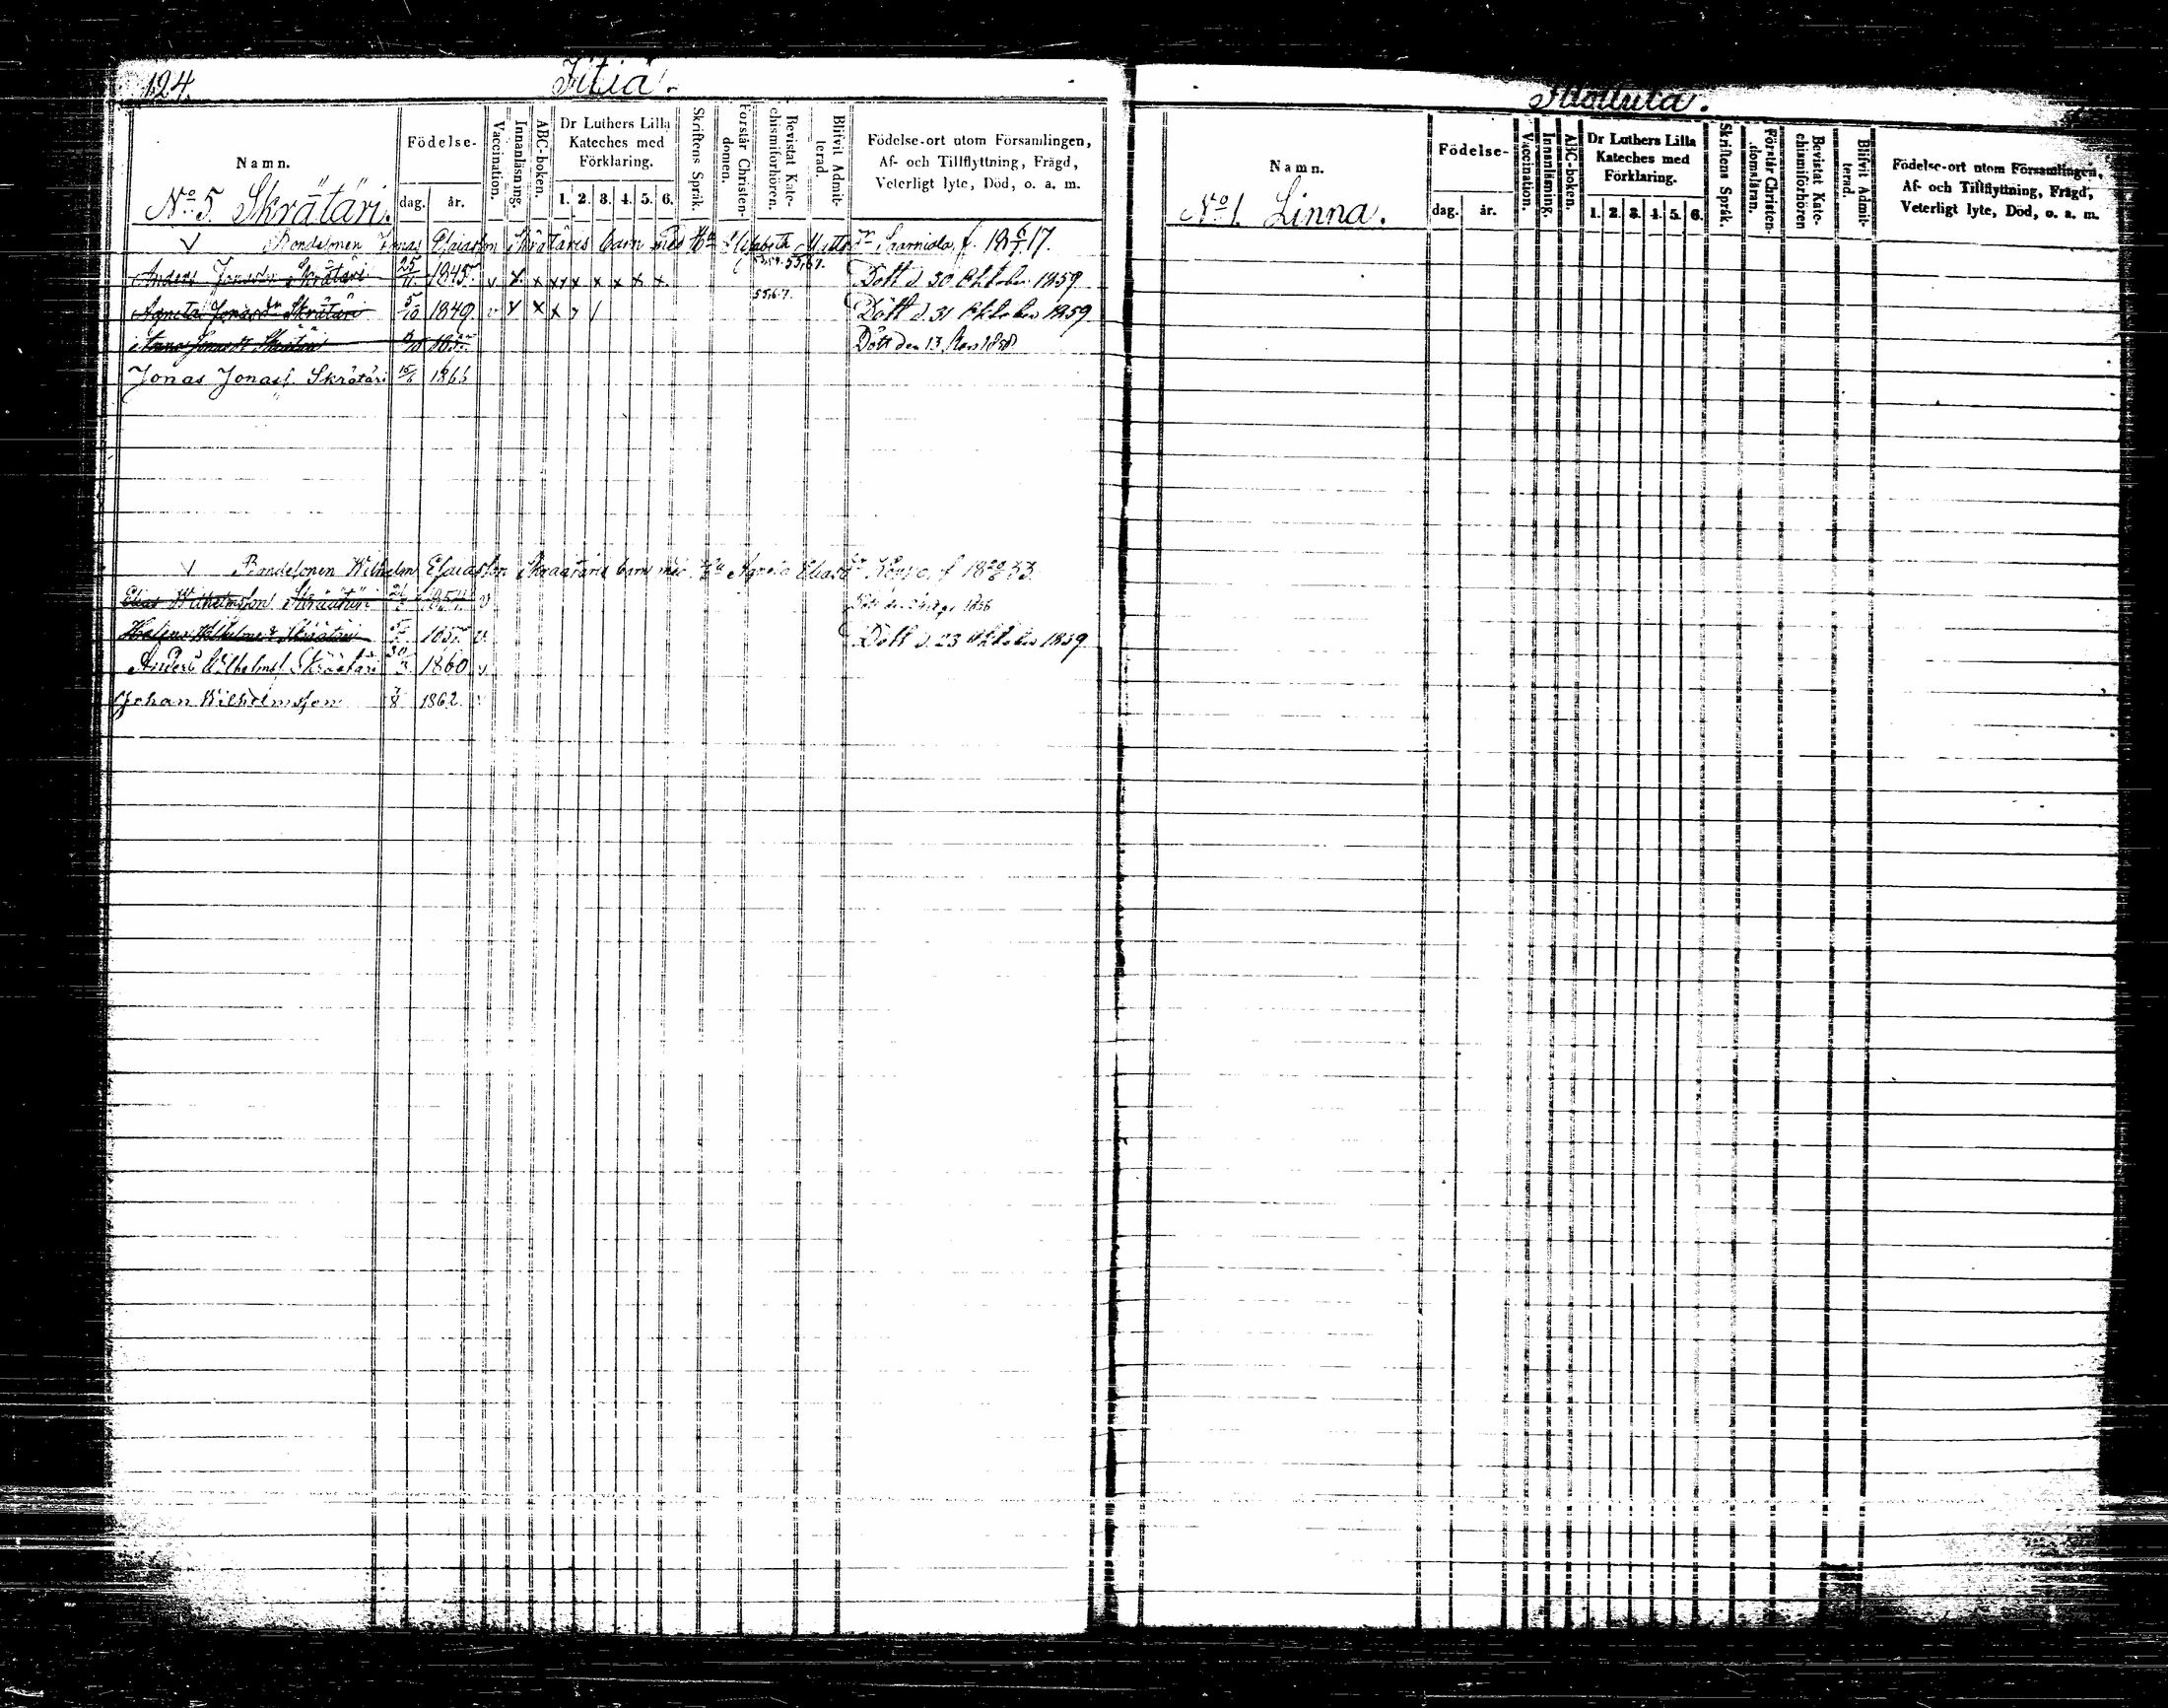 124.
Jitiä.
Namn.
Födelse-
dag.
år.
Vaccination.
Innanläsning.
ABC-boken.
Dr Luthers Lilla
Kateches med
Förklaring.
1. 2. 3. 4. 5. 6.
Skriftens Språk.
Förstår Christen-
domen.
Bevistat Kate-
chismiförhören.
Blifvit Admit-
terad.
Födelse-ort utom Församlingen,
Af- och Tillflyttning, Frägd,
Veterligt lyte, Död, o. a. m.
No 5. Skrätäri.
Bondesonen Jonas Esaiasson Skrätäris barn med Elisabeth f. 18 6/7 17.
Anders Jonasson Skrätäri 25/11 1845. v x x x x x x x x Dött d. 30 Oktober 1859
Agneta Jonasdr Skrätäri 5/10 1849 v x x x 5567. Dött d. 31 Oktober 1859
Anna Jonasdr Skrätäri Dött den 13
Jonas Jonass. Skrätäri
√ Bondesonen Wilhelm Esaiasson Skräätäris barn med Agneta Eliasdr
Elias Wilhelmsson Skräätäri 1854 v
Helena Wilhelmsdr Skräätäri v Dött d. 23 Oktober 1859
Anders Wilhelmss. Skräätäri 1860 v
Johan Wilhelmsson 7/8 1862. v
Namn.
Födelse-
dag.
år.
Vaccination.
Innanläsning.
ABC-boken.
Dr Luthers Lilla
Kateches med
Förklaring.
1. 2. 3. 4. 5. 6.
Skriftens Språk.
Förstår Christen-
domsläran.
Bevistat Kate-
chismiförhören
Blifvit Admit-
terad.
Födelse-ort utom Församlingen,
Af- och Tillflyttning, Frägd,
Veterligt lyte, Död, o. a. m.
No 1. Linna.